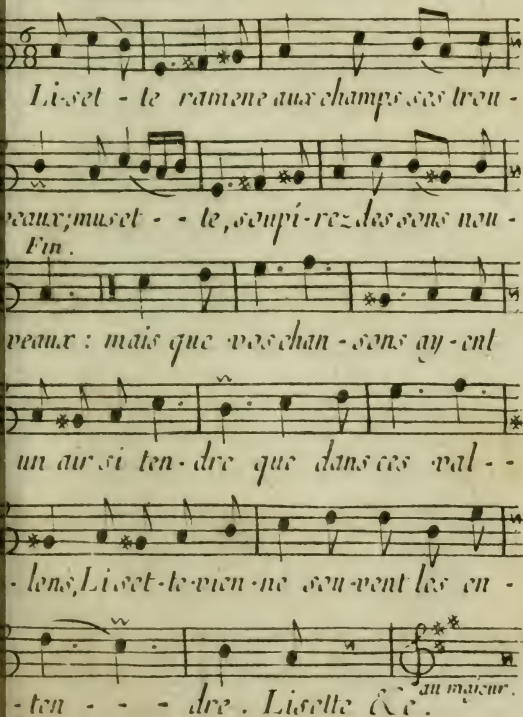 6
8
Li-set - te ramene aux champs ses trou -
peaux; muset - - te, soupi-rez des sons nou -
Fin.
veaux : mais que vos chan - sons ay - ent
un air si ten - dre que dans ces val - -
- lons, Liset-te vien-ne sou-vent les en -
- ten - - - dre. Lisette &c. au majeur.